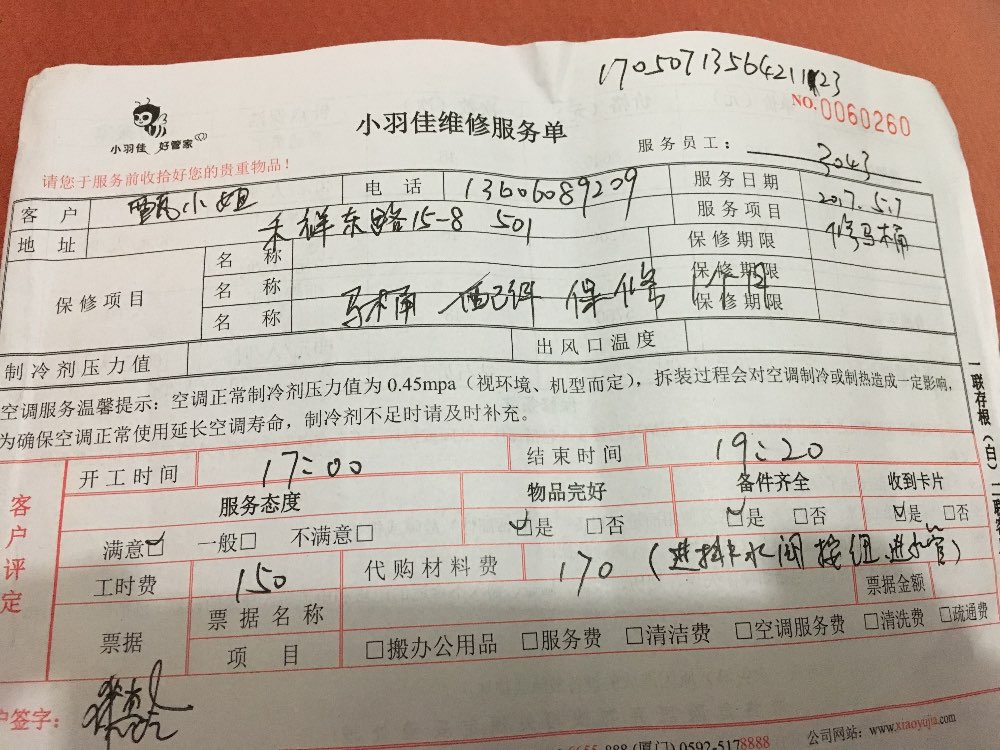 17050713564211 23
NO.0060260
小羽佳 好管家
小羽佳维修服务单
服务员工： 3043
请您于服务前收拾好您的贵重物品！
客户 甄小姐 电话 13606089209 服务日期 2017.5.7
地址 禾祥东路15-8 501 服务项目 修马桶
保修项目 名称 保修期限
名称 保修期限
名称 马桶 配件 保修 1个月 保修期限
制冷剂压力值 出风口温度
空调服务温馨提示：空调正常制冷剂压力值为 0.45mpa（视环境、机型而定），拆装过程会对空调制冷或制热造成一定影响，
为确保空调正常使用延长空调寿命，制冷剂不足时请及时补充。
一联存根（白）
客户评定
开工时间 17:00 结束时间 19:20
服务态度 物品完好 备件齐全 收到卡片
满意☑ 一般□ 不满意□ ☑是 □否 ☑是 □否 ☑是 □否
工时费 150 代购材料费 170 （进排水阀 按钮 进水管） 票据金额
票据 票据名称
项目 □搬办公用品 □服务费 □清洁费 □空调服务费 □清洗费 □疏通费
户签字：
公司网站：www.xiaoyujia.com
888 (厦门) 0592-5178888